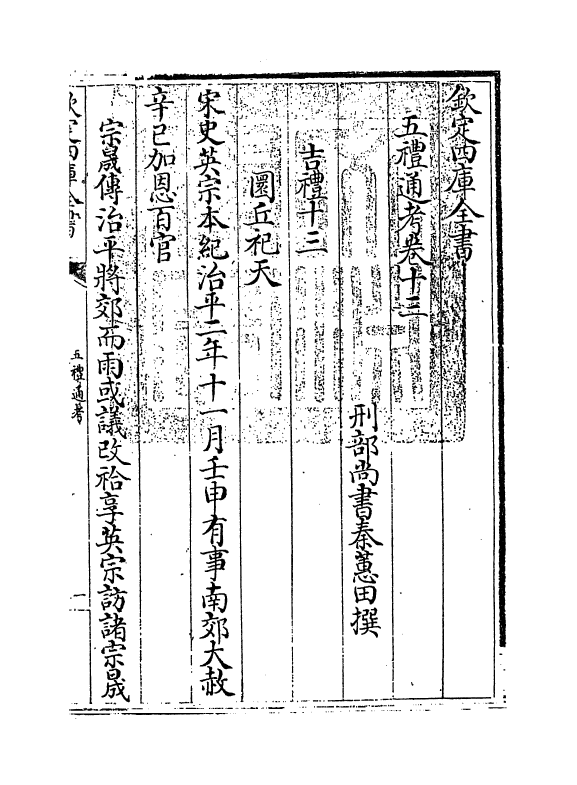 欽定四庫全書
五禮通考卷十三
刑部尚書秦蕙田撰
吉禮十三
圜丘祀天
宋史英宗本紀治平二年十一月壬申有事南郊大赦
辛巳加恩百官
宗晟傳治平將郊而雨或議改祫享英宗訪諸宗晟
欽定四庫全書
五禮通考
一